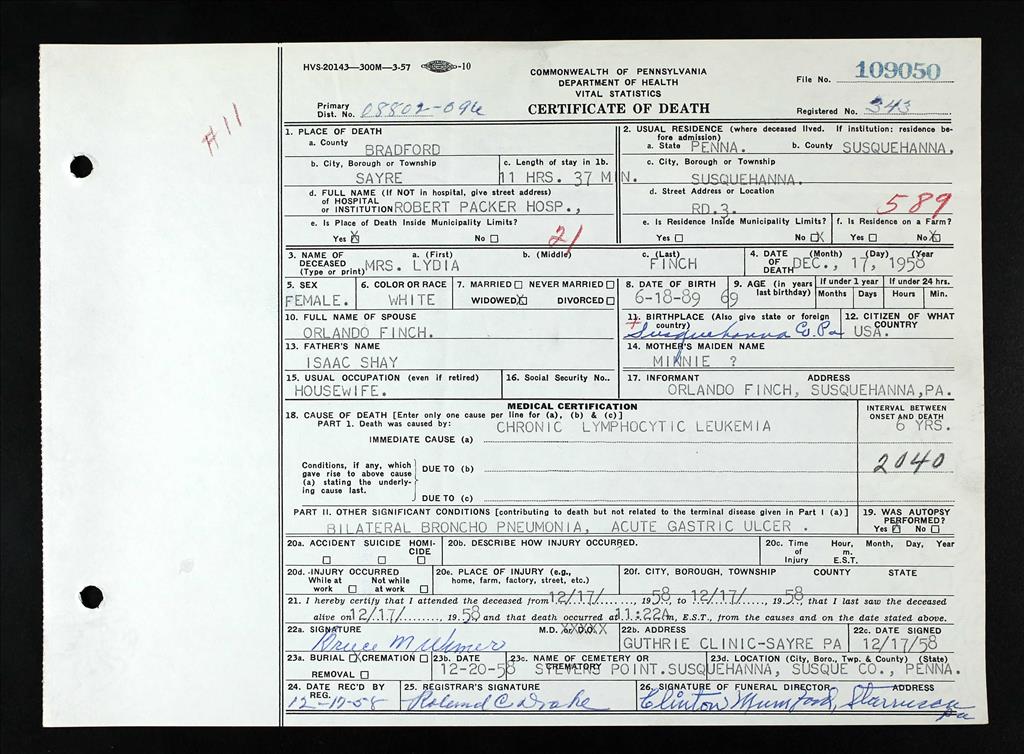 HVS-20143—300M—3-57 -10
COMMONWEALTH OF PENNSYLVANIA
DEPARTMENT OF HEALTH
VITAL STATISTICS
CERTIFICATE OF DEATH
File No. 109050
Primary
Dist. No. 08802-096
Registered No. 343
#11
1. PLACE OF DEATH
a. County
BRADFORD
2. USUAL RESIDENCE (where deceased lived. If institution: residence be-
fore admission)
a. State PENNA. b. County SUSQUEHANNA.
b. City, Borough or Township
SAYRE
c. Length of stay in 1b.
11 HRS. 37 MIN.
c. City, Borough or Township
SUSQUEHANNA.
d. FULL NAME (If NOT in hospital, give street address)
of HOSPITAL
or INSTITUTION ROBERT PACKER HOSP.,
d. Street Address or Location
RD.3.
589
e. Is Place of Death Inside Municipality Limits?
Yes X No
21
e. Is Residence Inside Municipality Limits?
Yes No X
f. Is Residence on a Farm?
Yes No X
3. NAME OF
DECEASED
(Type or print)
a. (First) b. (Middle) c. (Last)
MRS. LYDIA FINCH
4. DATE
OF
DEATH
(Month) (Day) (Year
DEC., 17, 1958
5. SEX
FEMALE.
6. COLOR OR RACE
WHITE
7. MARRIED NEVER MARRIED
WIDOWED X DIVORCED
8. DATE OF BIRTH
6-18-89
9. AGE (in years
last birthday)
69
If under 1 year
Months Days
If under 24 hrs.
Hours Min.
10. FULL NAME OF SPOUSE
ORLANDO FINCH.
11. BIRTHPLACE (Also give state or foreign
country)
Susquehanna Co. Pa
12. CITIZEN OF WHAT
COUNTRY
USA.
13. FATHER'S NAME
ISAAC SHAY
14. MOTHER'S MAIDEN NAME
MINNIE ?
15. USUAL OCCUPATION (even if retired)
HOUSEWIFE.
16. Social Security No..
17. INFORMANT ADDRESS
ORLANDO FINCH, SUSQUEHANNA,PA.
MEDICAL CERTIFICATION
18. CAUSE OF DEATH [Enter only one cause per line for (a), (b) & (c)]
PART 1. Death was caused by:
CHRONIC LYMPHOCYTIC LEUKEMIA
IMMEDIATE CAUSE (a)
INTERVAL BETWEEN
ONSET AND DEATH
6 YRS.
Conditions, if any, which
gave rise to above cause
(a) stating the underly-
ing cause last.
DUE TO (b)
DUE TO (c)
2040
PART II. OTHER SIGNIFICANT CONDITIONS [contributing to death but not related to the terminal disease given in Part I (a)]
BILATERAL BRONCHO PNEUMONIA, ACUTE GASTRIC ULCER .
19. WAS AUTOPSY
PERFORMED?
Yes X No
20a. ACCIDENT SUICIDE HOMI-
CIDE
20b. DESCRIBE HOW INJURY OCCURRED.
20c. Time
of
Injury
Hour, Month, Day, Year
m.
E.S.T.
20d. INJURY OCCURRED
While at
work
Not while
at work
20e. PLACE OF INJURY (e.g.,
home, farm, factory, street, etc.)
20f. CITY, BOROUGH, TOWNSHIP COUNTY STATE
21. I hereby certify that I attended the deceased from 12/17/, 1958 to 12/17/, 1958, that I last saw the deceased
alive on 12/17/, 1958 and that death occurred at 11:22A m, E.S.T., from the causes and on the date stated above.
22a. SIGNATURE M.D. or D.O. XXXXX
22b. ADDRESS
GUTHRIE CLINIC-SAYRE PA
22c. DATE SIGNED
12/17/58
23a. BURIAL X CREMATION
REMOVAL
23b. DATE
12-20-58
23c. NAME OF CEMETERY OR
CREMATORY
STEVENS POINT.
23d. LOCATION (City, Boro., Twp. & County) (State)
SUSQUEHANNA, SUSQUE CO., PENNA.
24. DATE REC'D BY
REG.
12-17-58
25. REGISTRAR'S SIGNATURE
Roland C Drake
26. SIGNATURE OF FUNERAL DIRECTOR ADDRESS
Clinton Mumford, Starrucca
Pa